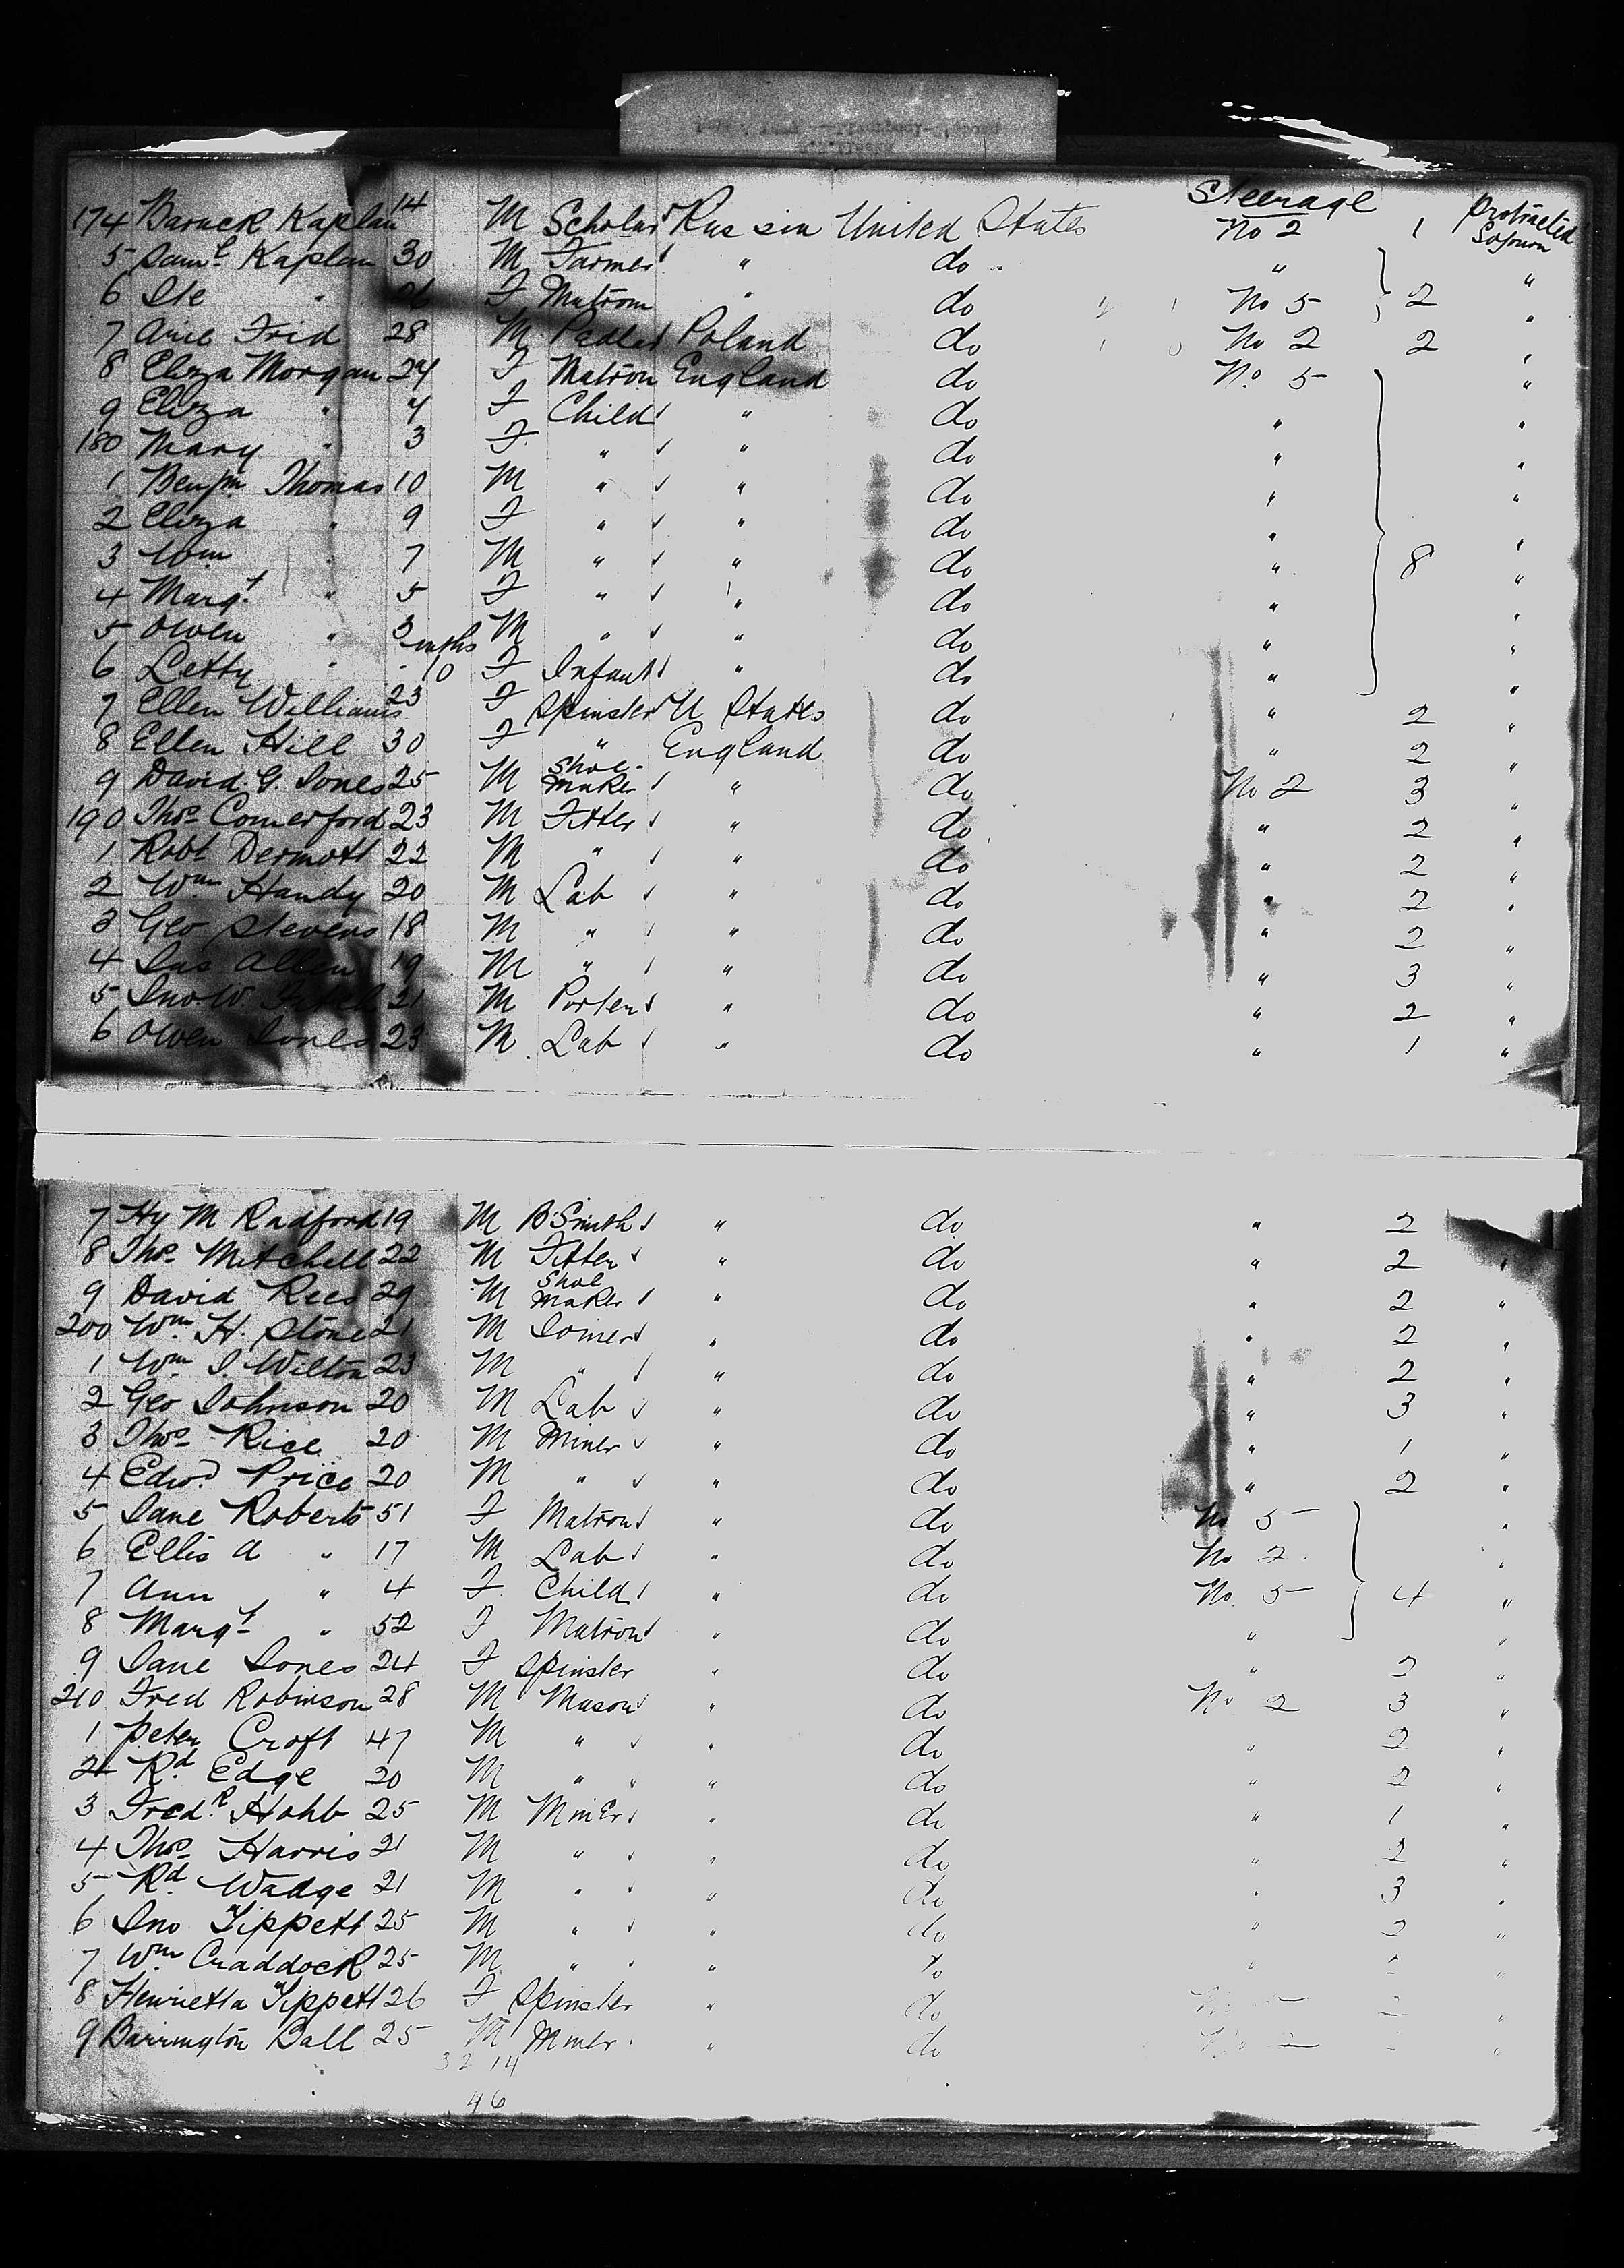 Steerage
174 Baruck Kaplan 14 M Scholar Russia United States No 2 1 Protracted Sojourn
5 Saml Kaplan 30 M Farmer " do " "
6 Ite " 26 F Matron " do No 5 2 "
7 Arie Frid 28 M Pedler Poland do No 2 2 "
8 Eliza Morgan 24 F Matron England do No 5 "
9 Eliza " 4 F Child " do " "
180 Mary " 3 F " " do " "
1 Benjm Thomas 10 M " " do " "
2 Eliza " 9 F " " do " "
3 Wm " 7 M " " do " 8 "
4 Margt " 5 F " " do " "
5 Owen " 3 M " " do " "
6 Letty " mths 10 F Infant " do " "
7 Ellen Williams 23 F Spinster U States do " 2 "
8 Ellen Hill 30 F " England do " 2 "
9 David. G. Jones 25 M Shoe-maker " do No 2 3 "
190 Thos Comerford 23 M Fitter " do " 2 "
1 Robt Dermott 22 M " " do " 2 "
2 Wm Handy 20 M Lab " do " 2 "
3 Geo Stevens 18 M " " do " 2 "
4 Jas Allen 19 M " " do " 3 "
5 Jno. W. 21 M Porter " do " 2 "
6 Owen Jones 23 M Lab " do " 1 "
7 Hy M Radford 19 M B.Smith " do " 2
8 Thos Mitchell 22 M Fitter " do " 2 "
9 David Rees 29 M Shoe maker " do " 2 "
200 Wm H. Stone 21 M Joiner " do " 2 "
1 Wm J. Wilton 23 M " " do " 2 "
2 Geo Johnson 20 M Lab " do " 3 "
3 Thos Rice 20 M Miner " do " 1 "
4 Edwd Price 20 M " " do " 2 "
5 Jane Roberts 51 F Matron " do No 5 "
6 Ellis A " 17 M Lab " do No 2 "
7 Ann " 4 F Child " do No 5 4 "
8 Margt " 52 F Matron " do " "
9 Jane Jones 24 F Spinster " do " 2 "
210 Fred Robinson 28 M Mason " do No 2 3 "
1 Peter Croft 47 M " " do " 2 "
2 Rd Edge 20 M " " do " 2 "
3 Fredk Hohb 25 M Miner " do " 1 "
4 Thos Harris 21 M " " do " 2 "
5 Rd Wadge 21 M " " do " 3 "
6 Jno Tippett 25 M " " do " 2 "
7 Wm Craddock 25 M " " do " "
8 Henrietta Tippett 26 F Spinster " do "
9 Barrington Ball 25 M Miner " do "
32 14
46